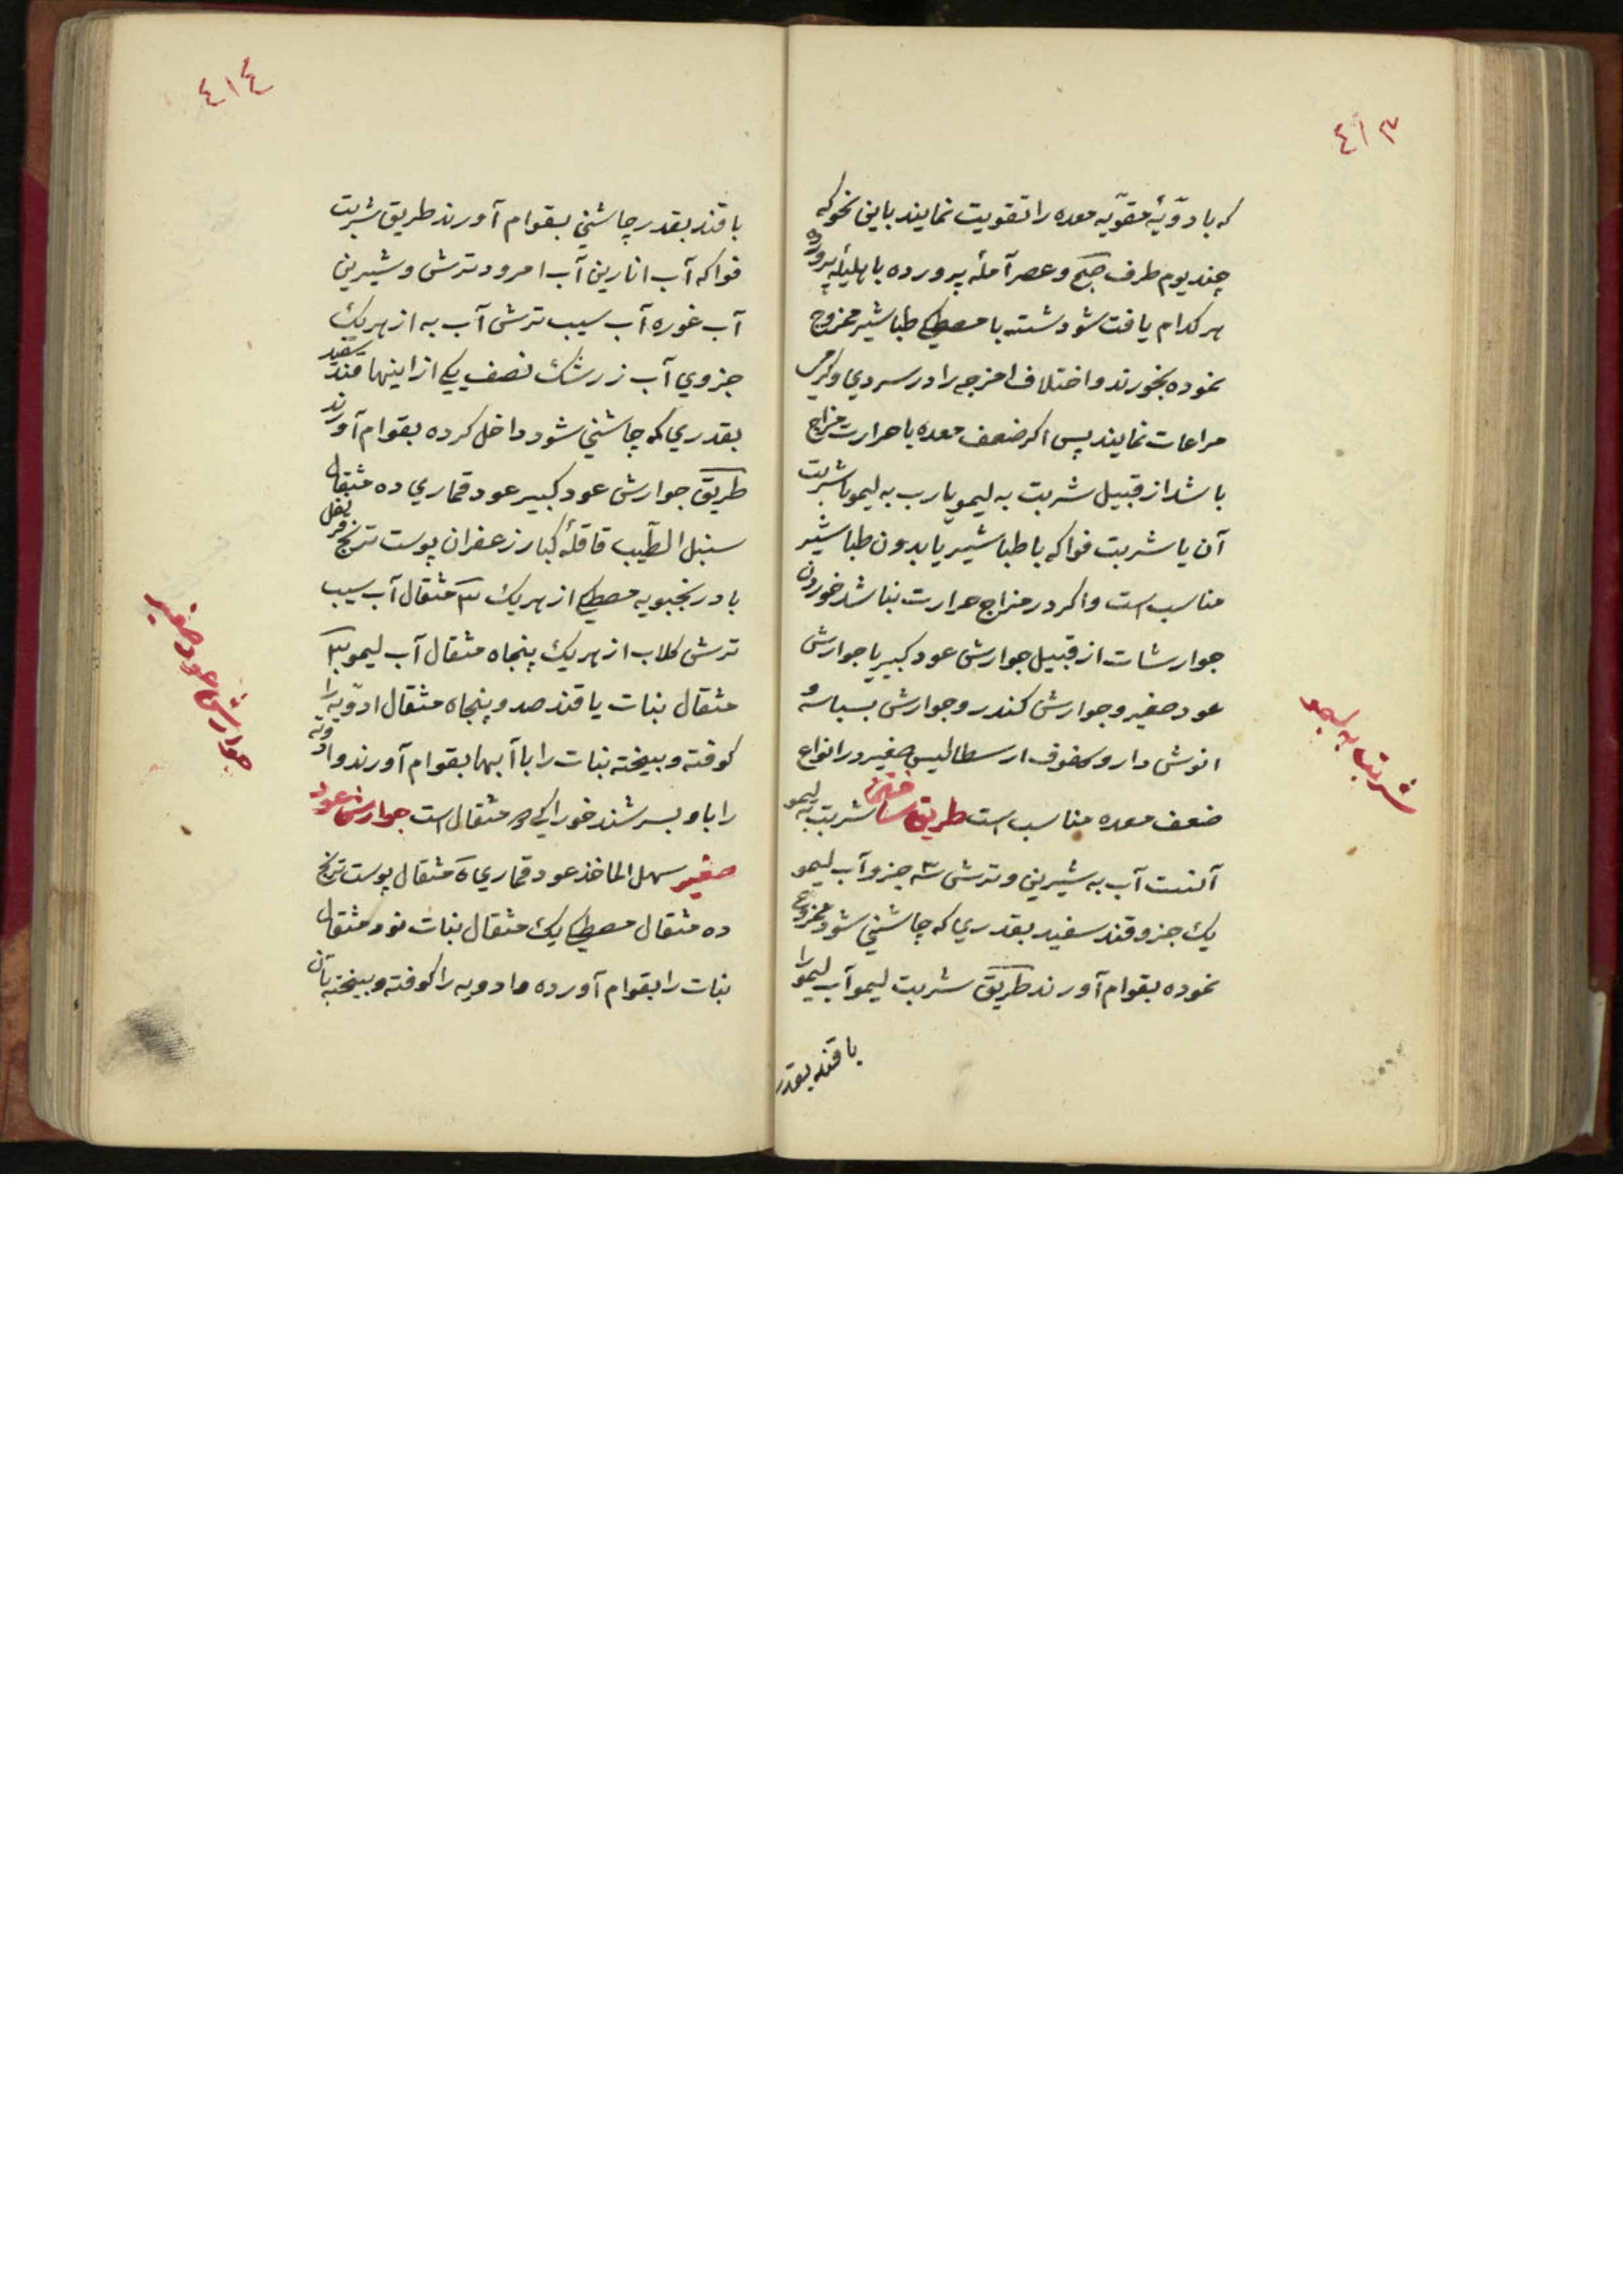 ٤١٣
که بادویّهٔ مقوّیه معده را تقویت نمایند باین نحو که
چند یوم طرف صبح و عصر آملهٔ پرورده یا هلیلهٔ پرورده
هر کدام یافت شود شسته با مصطکی طباشیر ممزوج
نموده بخورند و اختلاف امزجه را در سردی و گرمی
مراعات نمایند پس اکر ضعف معده با حرارت مزاج
باشد از قبیل شربت به لیمو یا رب به لیمو یا شربت
آن یا شربت فواکه با طباشیر یا بدون طباشیر
مناسب است و اکر در مزاج حرارت نباشد خوردن
جوارشات از قبیل جوارش عود کبیر یا جوارش
عود صغیر و جوارش کندر و جوارش بسباسه و
انوش دارو و سفوف ارسطالیس صغیر در انواع
ضعف معده مناسب است طریق ساختن شربت به لیمو
آنست آب به شیرین و ترش ۳ جزو آب لیمو
یک جزو قند سفید بقدری که چاشنی شود ممزوج
نموده بقوام آورند طریق شربت لیمو آب لیمو را
با قند بقدر
شربت به لیمو
٤١٤
با قند بقدر چاشنی بقوام آورند طریق شربت
فواکه آب انارین آب امرود ترش و شیرین
آب غوره آب سیب ترش آب به از هر یک
جزوی آب زرشک نصف یکی از اینها قند سفید
بقدری که چاشنی شود داخل کرده بقوام آورند
طریق جوارش عود کبیر عود قماری ده مثقال
سنبل الطیب قاقلهٔ کبار زعفران پوست ترنج قرنفل
بادرنجبویه مصطکی از هر یک مثقال آب سیب
ترش کلاب از هر یک پنجاه مثقال آب لیمو
مثقال نبات یا قند صد و پنجاه مثقال ادویّه را
کوفته و بیخته نبات را با آبها بقوام آورند و ادویه
را با او بسرشند خوراکی مثقال است جوارش عود
صغیر سهل الماخذ عود قماری مثقال پوست ترنج
ده مثقال مصطکی یک مثقال نبات نود مثقال
نبات را بقوام آورده و ادویه را کوفته و بیخته بآن
جوارش عود صغیر